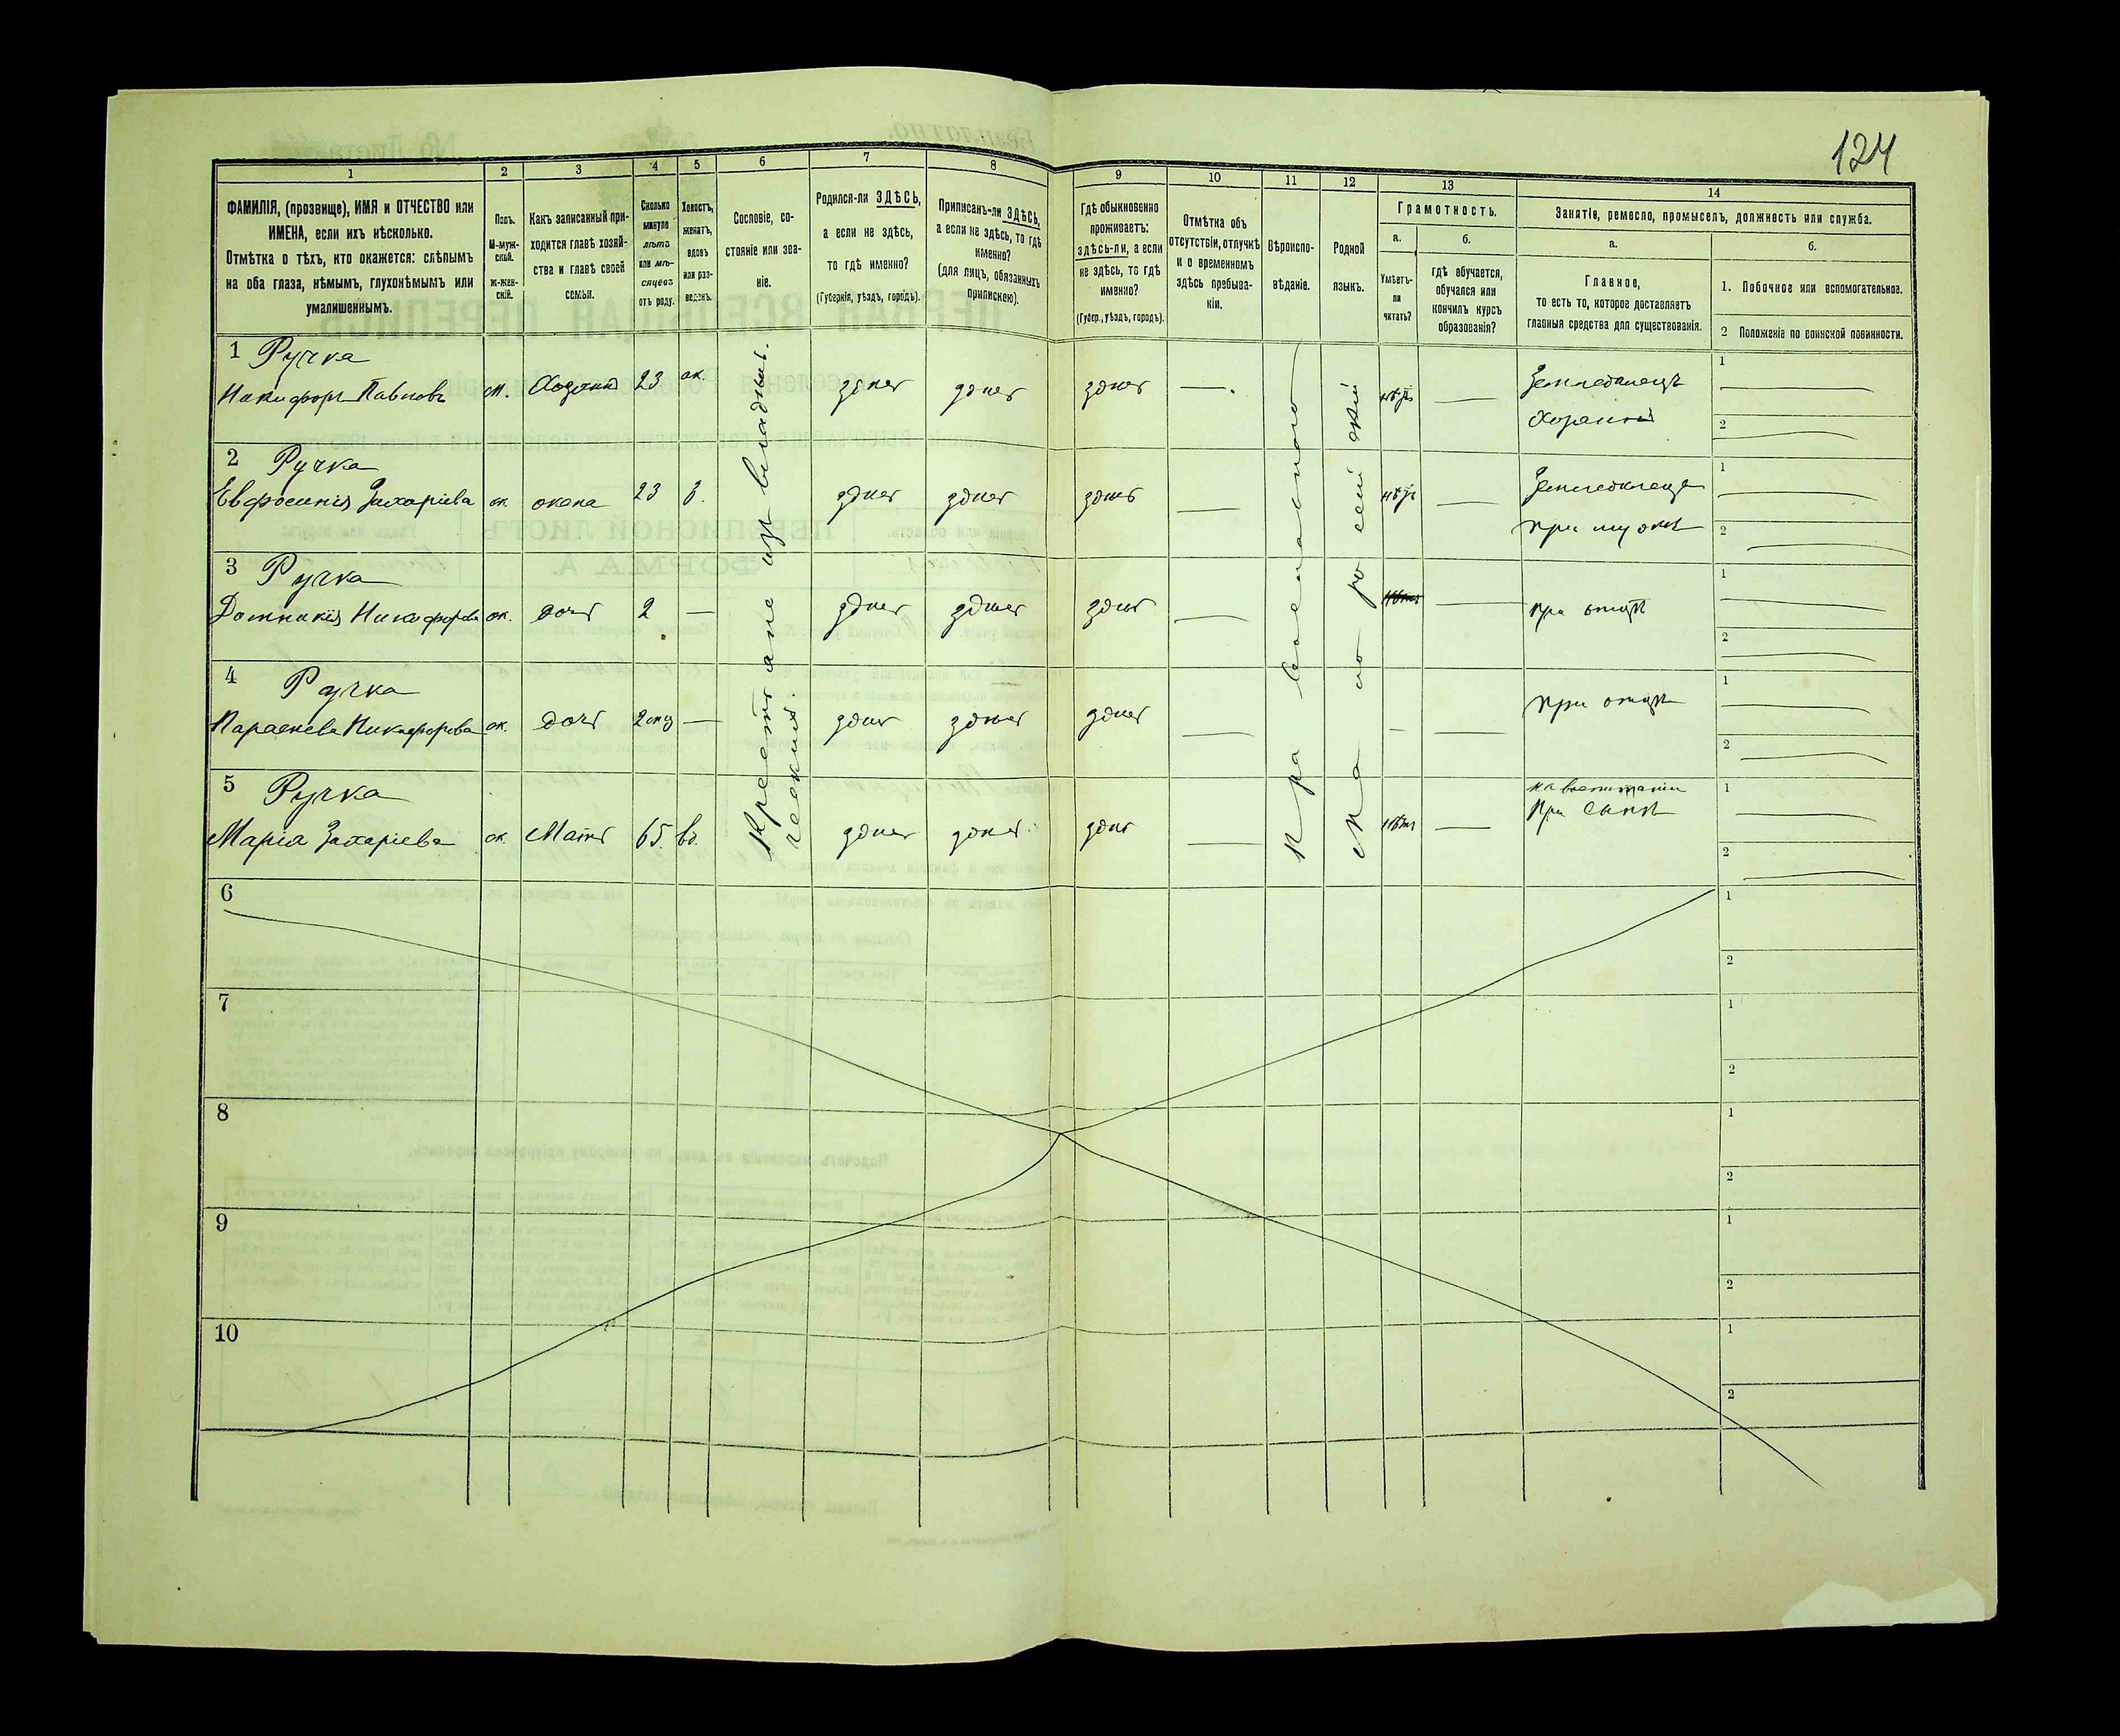 124
1
2
3
4
5
6
7
8
9
10
11
12
13
14
ФАМИЛІЯ, (прозвище), ИМЯ и ОТЧЕСТВО или
ИМЕНА, если ихъ нѣсколько.
Отмѣтка о тѣхъ, кто окажется: слѣпымъ
на оба глаза, нѣмымъ, глухонѣмымъ или
умалишеннымъ.
Полъ.
М-муж-
ской.
ж-жен-
скій.
Какъ записанный при-
ходится главѣ хозяй-
ства и главѣ своей
семьи.
Сколько
минуло
лѣтъ
или мѣ-
сяцевъ
отъ роду.
Холостъ,
женатъ,
вдовъ
или раз-
веденъ.
Сословіе, со-
стояніе или зва-
ніе.
Родился-ли ЗДѢСЬ,
а если не здѣсь,
то гдѣ именно?
(Губернія, уѣздъ, городъ).
Приписанъ-ли ЗДѢСЬ,
а если не здѣсь, то гдѣ
именно?
(для лицъ, обязанныхъ
припискою).
Гдѣ обыкновенно
проживаетъ:
здѣсь-ли, а если
не здѣсь, то гдѣ
именно?
(Губер., уѣздъ, городъ).
Отмѣтка объ
отсутствіи, отлучкѣ
и о временномъ
здѣсь пребыва-
ніи.
Вѣроиспо-
вѣданіе.
Родной
языкъ.
Грамотность.
а.
Умѣетъ-
ли
читать?
б.
гдѣ обучается,
обучался или
кончилъ курсъ
образованія?
Занятіе, ремесло, промыселъ, должность или служба.
а.
Главное,
то есть то, которое доставляетъ
главныя средства для существованія.
б.
1. Побочное или вспомогательное.
2 Положеніе по воинской повинности.
1 Ручка
Никифоръ Павловъ м. Хозяинъ 23 ж. здѣсь здѣсь здѣсь —. нѣтъ — Земледѣлецъ
Хозяинъ
1
2
2 Ручка
Евфросинія Захаріева ж. жена 23 з. здѣсь здѣсь здѣсь — нѣтъ — Земледѣлецъ
при мужѣ
1
2
3 Ручка
Домникія Никифорова ж. дочь 2 — здѣсь здѣсь здѣсь — — при отцѣ
1
2
4 Ручка
Параскева Никифорова ж. дочь 2 мѣс — здѣсь здѣсь здѣсь — — — при отцѣ
1
2
5 Ручка
Марія Захаріева ж. Мать 65. вд. здѣсь здѣсь здѣсь — нѣтъ — на воспитаніи
при сынѣ
1
2
Крестьяне изъ владѣль-
ческихъ.
Православного
Малороссійскій
6
1
2
7
1
2
8
1
2
9
1
2
10
1
2